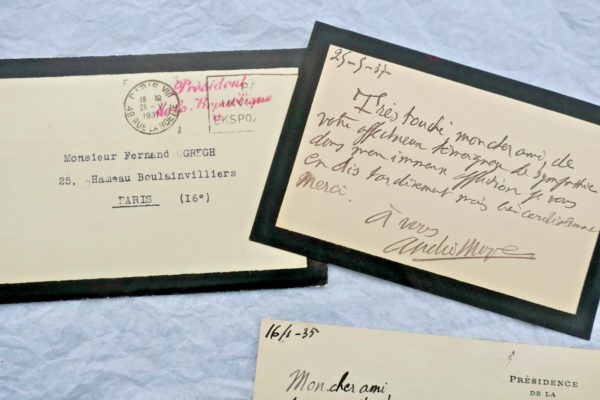 PARIS VIII
18 30
25 - V
193
49 RUE LA BOETIE
Président
de la République
EXPO
Monsieur Fernand GREGH
25, Hameau Boulainvilliers
PARIS (16e)
25-5-37
Très touché, mon cher ami, de
votre affectueux témoignage de sympathie
dans mon immense affliction je vous
en dis tardivement mais bien cordialement
Merci.
à vous
16/1-35
Mon cher ami
PRÉSIDENCE
DE LA